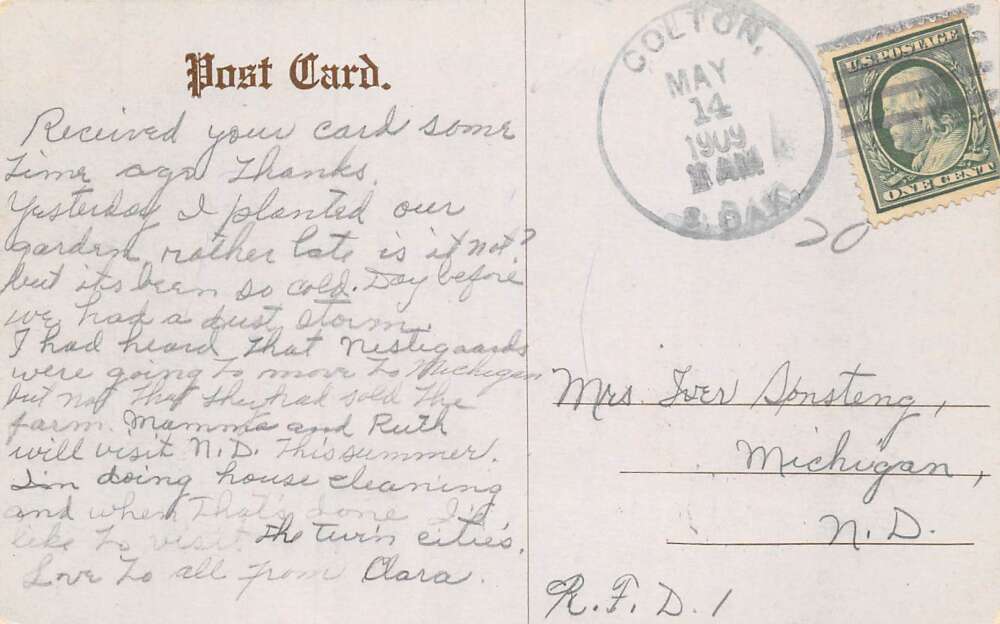 Post Card.
Received your card some
time ago Thanks.
Yesterday I planted our
garden, rather late is it not?
but its been so cold. Day before
we had a dust storm.
I had heard that Nestegaards
were going to move to Michigan
but not that they had sold the
farm. Mamma and Ruth
will visit N.D. this summer.
I'm doing house cleaning
and when that's done I'd
like to visit the twin cities.
Love to all from Clara.
COLTON,
MAY
14
1909
AM
S. DAK.
U.S. POSTAGE
ONE CENT
20
Mrs. Iver Sonsteng,
Michigan,
N.D.
R.F.D. 1